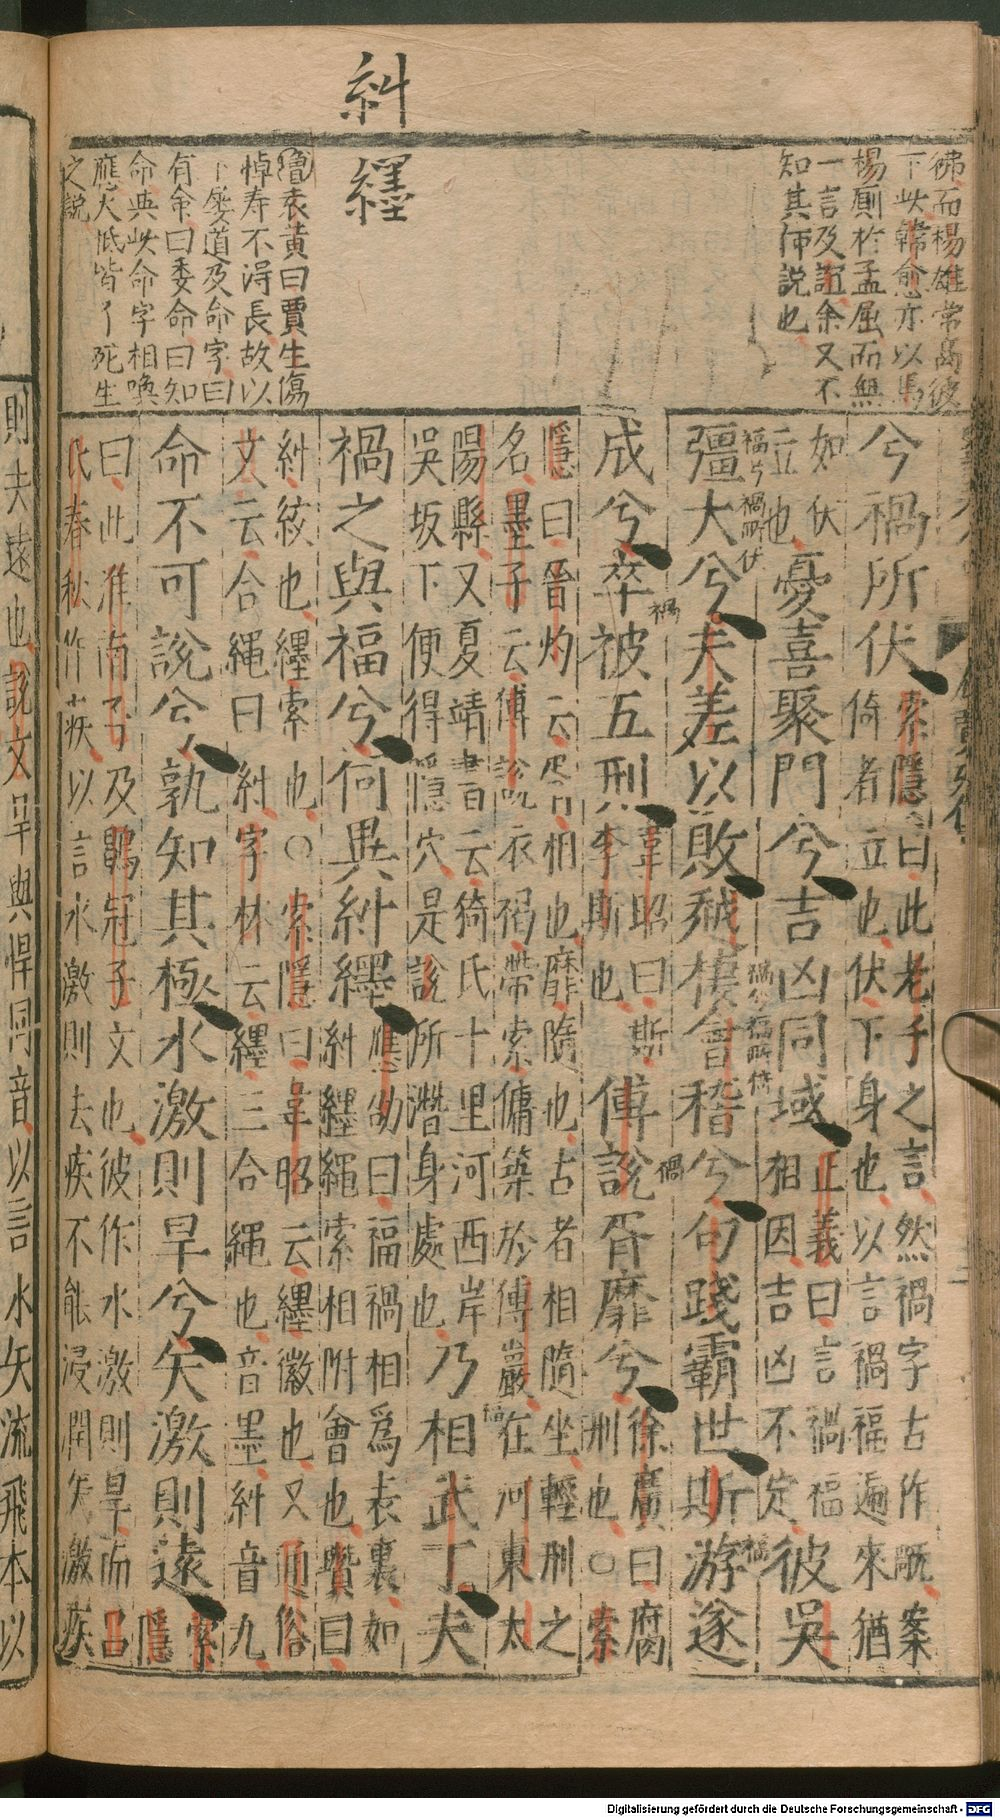 糾
纆
彿而楊雄常高彼
下此韓愈亦以馬
楊厠於孟屈而無
一言及誼余又不
知其何説也
隱袁黃曰賈生傷
悼寿不得長故以
下屡道及命字曰
有命曰委命曰知
命與此命字相喚
應大㡳皆了死生
之説
兮禍所伏索隱曰此老子之言然禍字古作𥘵案
倚者立也伏下身也以言禍福遍來猶
如伏
立也憂喜聚門兮吉凶同域正義曰言禍福
相因吉凶不定彼吳
福兮禍所伏
禍兮福所倚
彊大兮夫差以敗越棲會稽兮句踐霸世斯游遂
成兮卒被五刑韋昭曰斯
李斯也傅説胥靡兮徐廣曰腐
刑也○索
隱曰晉灼云胥相也靡隨也古者相隨坐輕刑之
名墨子云傅說衣褐帶索傭築於傅巖在河東太
陽縣又夏靖書云猗氏十里河西岸
吳坂下便得隱穴是說所潛身處也乃相武丁夫
禍之與福兮何異糾纆應劭曰福禍相爲表裏如
糾纆繩索相附會也瓚曰
糾絞也纆索也○索隱曰韋昭云纆徽也又通俗
文云合繩曰糾字林云纆三合繩也音墨糾音九
命不可說兮孰知其極水激則旱兮矢激則遠索
隱
曰此淮南子及鶡冠子文也彼作水激則旱而呂
氏春秋作疾以言水激則去疾不能浸潤矢激疾
則去遠也說文旱與悍同音以言水矢流飛本以
Digitalisierung gefördert durch die Deutsche Forschungsgemeinschaft - DFG